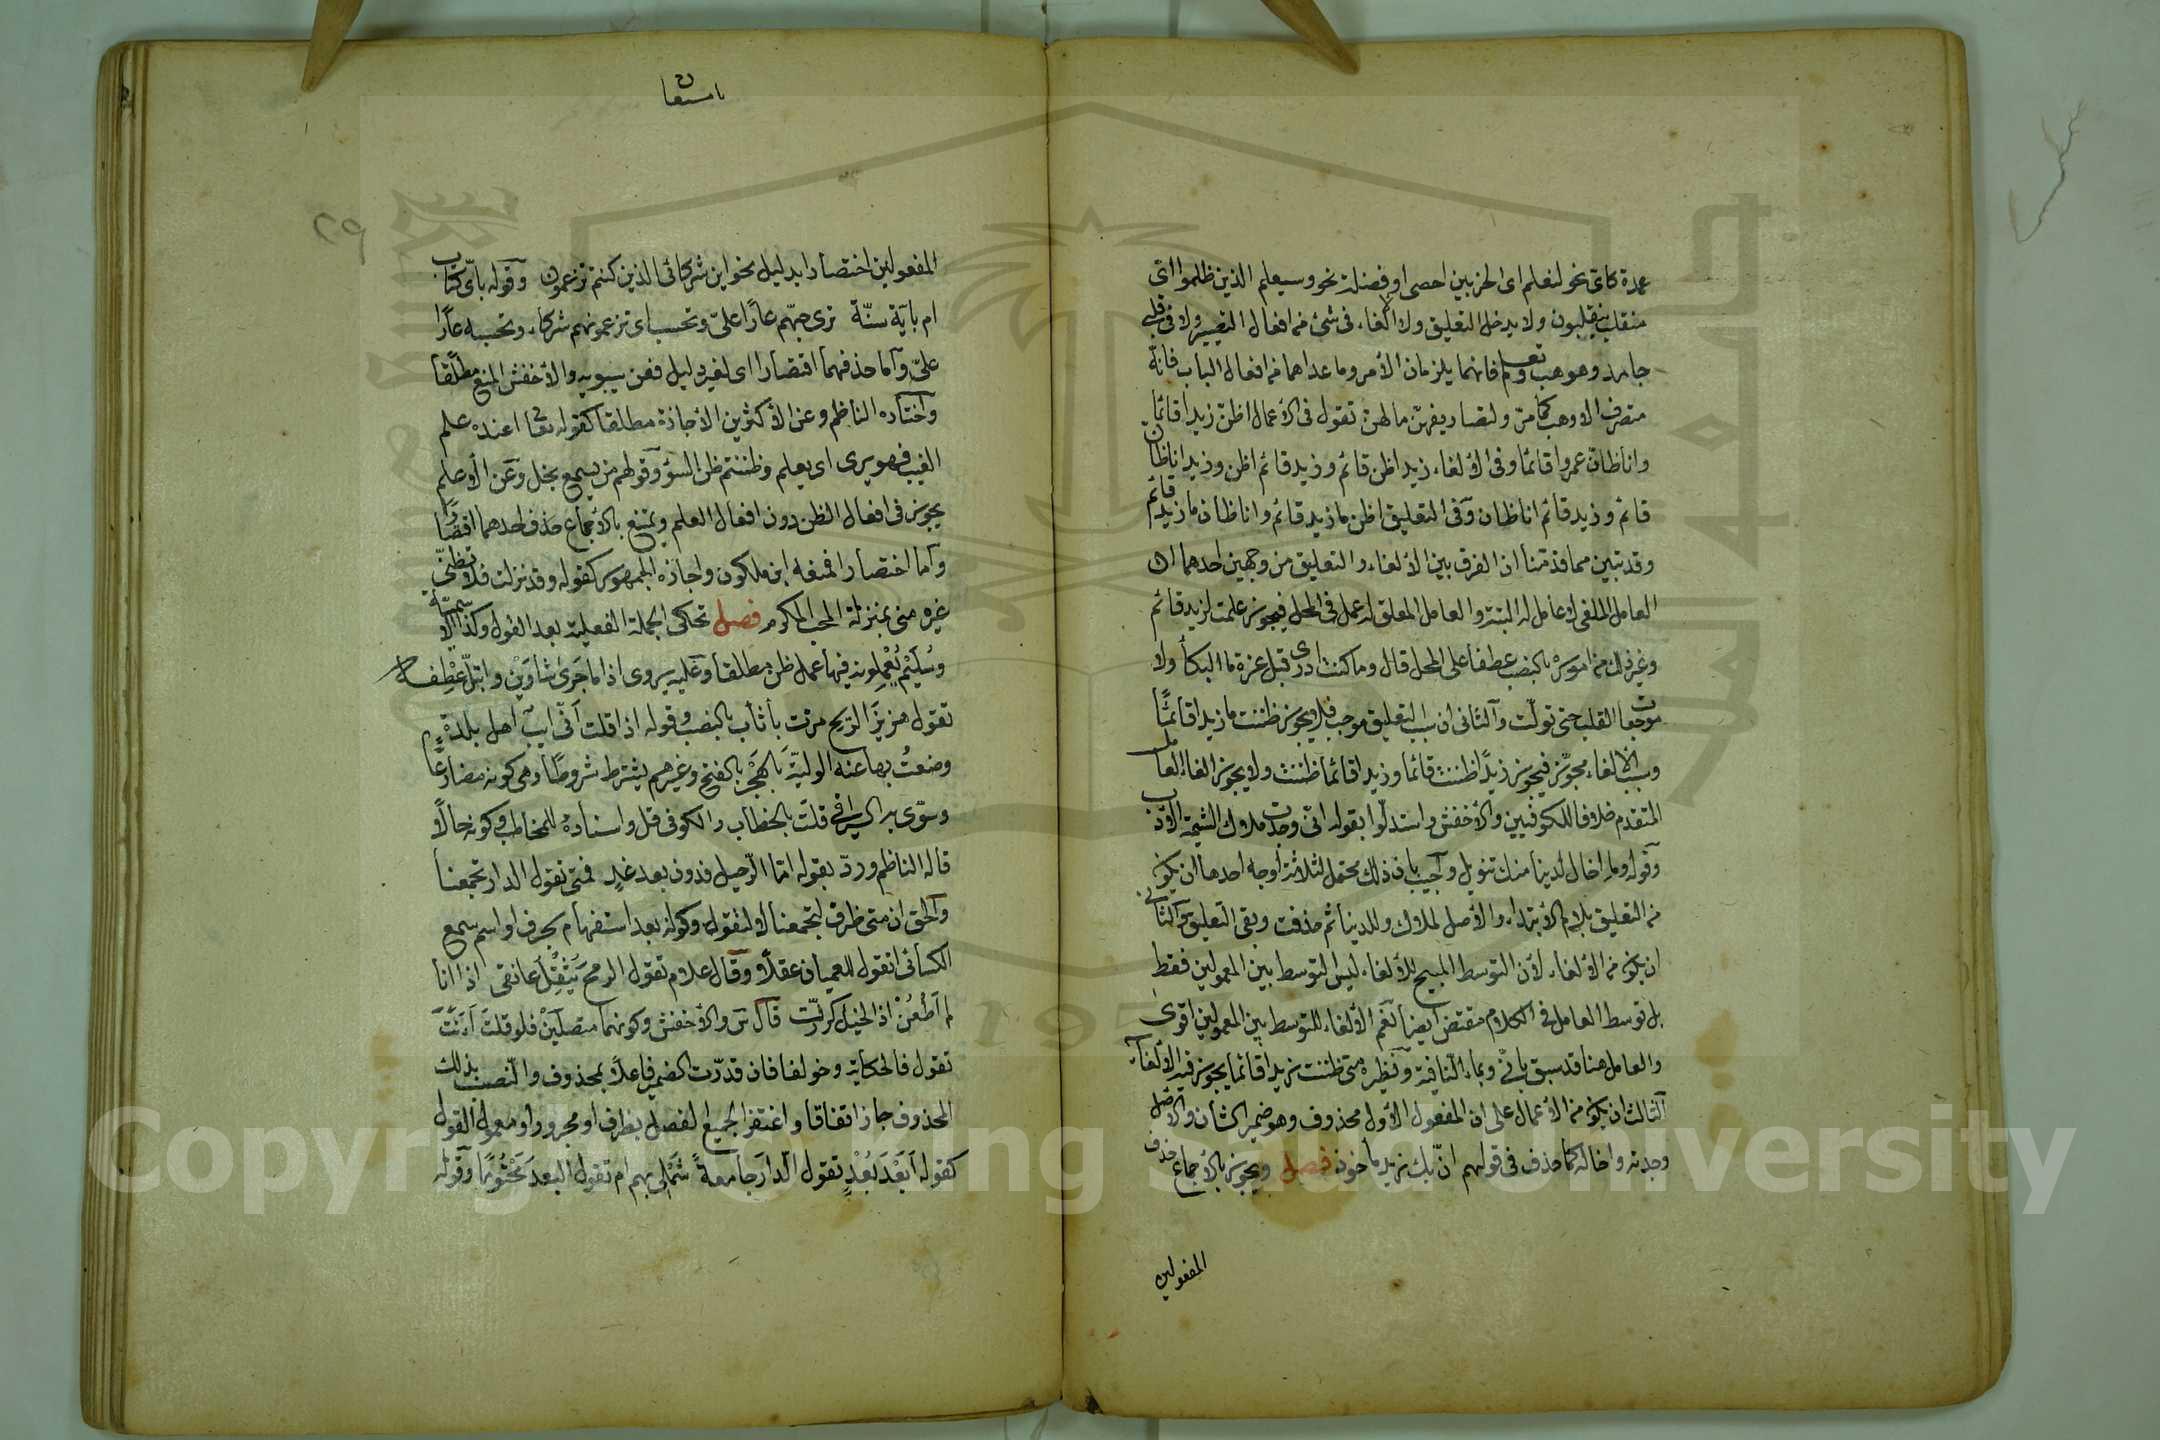 عمدة كاتى نحو لنعلم اى الحزبين احصى او فضلة نحو وسيعلم الذين ظلموا اى
منقلب ينقلبون ولا يدخل التعليق ولا الالغاء فى شئ من افعال التصيير ولا فى قلبى
جامد وهو هب وتعلم فانهما يلزمان الأمر وما عداهما من افعال الباب فانه
متصرف الا وهب كما مرّ ولتصاريفهن ما لهن تقول فى الأعمال اظن زيدا قائما
وانا ظان عمروا قائما وفى الألغاء زيد اظن قائم وزيد قائم اظن وزيد انا ظان
قائم وزيد قائم انا ظان وفى التعليق اظن ما زيد قائم وانا ظان ما زيد قائم
وقد تبين مما قدمنا ان الفرق بين الألغاء والتعليق من وجهين احدهما ان
العامل الملغى لا عامل له البتة والعامل المعلق له عمل فى المحل فيجوز علمت لزيد قائم
وغير ذلك من اموره بالنصب عطفا على المحل قال وما كنت ادرى قبل عزة ما البكا ولا
موجعات القلب حتى تولّت والثانى ان سبب التعليق موجب فلا يجوز ظننت ما زيدا قائمًا
وسبب الالغاء مجوّز فيجوز زيدًا ظننت قائما وزيدا قائما ظننت ولا يجوز الغاء العامل
المتقدم خلافا للكوفيين والأخفش واستدلّوا بقوله انّى وجدت ملاك الشيمة الأدب
وقوله وما اخال لدينا منك تنويل وأجيب بان ذلك محتمل لثلاثة أوجه احدها ان يكون
من التعليق بلام الأبتداء والأصل لملاك وللدينا ثم حذفت وبقى التعليق والثانى
ان يكون من الألغاء لأن التوسط المبيح للألغاء ليس التوسط بين المعمولين فقط
بل توسط العامل فى الكلام مقتض ايضا نعم الألغاء للتوسط بين المعمولين اقوى
والعامل هنا قد سبق بانّى وبما النافية ونظيره متى ظننت زيدا قائما يجوز فيه الألغاء
الثالث ان يكون من الأعمال على ان المفعول الأول محذوف وهو ضمير الشأن والأصل
وجدته واخاله كما حذف فى قولهم انّ بك زيد مأخوذ فصل ويجوز بالأجماع حذف
المفعولين
٢٩
المفعولين اختصارا بدليل نحو اين شركائى الذين كنتم تزعمون وقوله باىّ كتاب
ام باية سنّة ترى حبهم عارًا علىّ وتحسب اى تزعمونهم شركاء وتحسبه عارًا
علىّ وأما حذفهما اقتصارا اى لغير دليل فعن سيبويه والأخفش المنع مطلقا
واختاره الناظم وعن الأكثرين الأجازة مطلقا كقوله تعا اعنده علم
الغيب فهو يرى اى يعلم وظننتم ظن السوء وقولهم من يسمع يخل وعن الأعلم
يجوز فى افعال الظن دون افعال العلم ويمتنع بالأجماع حذف احدهما اقتصارا
وأما اختصارا فمنعه ابن ملكون واجازه الجمهور كقوله وقد نزلت فلا تظنّى
غيره منى بمنزلة المحب المكرم فصل تحكى الجملة الفعلية بعد القول وكذا الاسمية
وسُلَيْم يُعْمِلونه فيها عمل ظن مطلقا وعليه يروى اذا ما جَرَى شاوَيْن وابتلّ عِطْفه
تقول هزيزَ الريح مرّت بأثأب بالنصب وقوله اذا قلت أنّى آيبٌ اهل بلدة
وضعتُ بها عنه الوليّة بالهَجْر بالفتح وغيرهم يشترط شروطًا وهى كونه مضارعًا
وسوّى به السيرافى قلتَ بالخطاب والكوفى قل واسناده للمخاطب وكونه حالاً
قاله الناظم وردّ بقوله امّا الرّحيل فدون بعد غدٍ فمتى تقول الدار تجمعنا
والحق ان متى ظرف لتجمعنا لا لتقول وكونه بعد استفهام بحرف او اسم سمع
الكسائى اتقول للعميان عقلًا وقال علام تقول الرمحَ يُثْقِلُ عاتقى اذا انا
لم اَطْعُنْ اذا الخيل كرّت قال س والأخفش وكونهما متصلَيْن فلو قلتَ أانْتَ
تقول فالحكاية وخولفا فان قدّرت الضمير فاعلًا بمحذوف والنصب بذلك
المحذوف جاز اتفاقا واغتفر الجميع الفصل بظرف او مجرور او معمول القول
كقوله أبَعْدَ بُعْدٍ تقول الّدارَ جامعةً شملى بهم ام تقول البعدَ مَحْتُومًا وقوله
Copyright © King Saud University